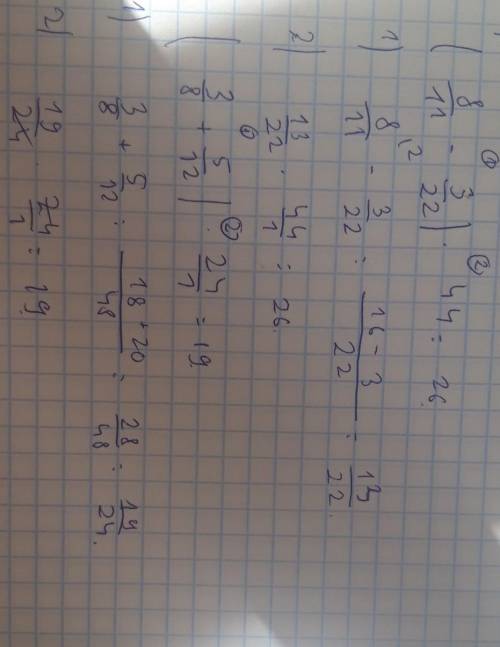 ( 8/11 - 3/22 ) · 44 = 26
1) 8/11 - 3/22 = 16 - 3/22 = 13/22
2) 13/22 · 44/1 = 26
( 3/8 + 5/12 ) · 24/1 = 19
1) 3/8 + 5/12 = 18 + 20/48 = 28/48 =
2) 19/24 · 24/1 = 19